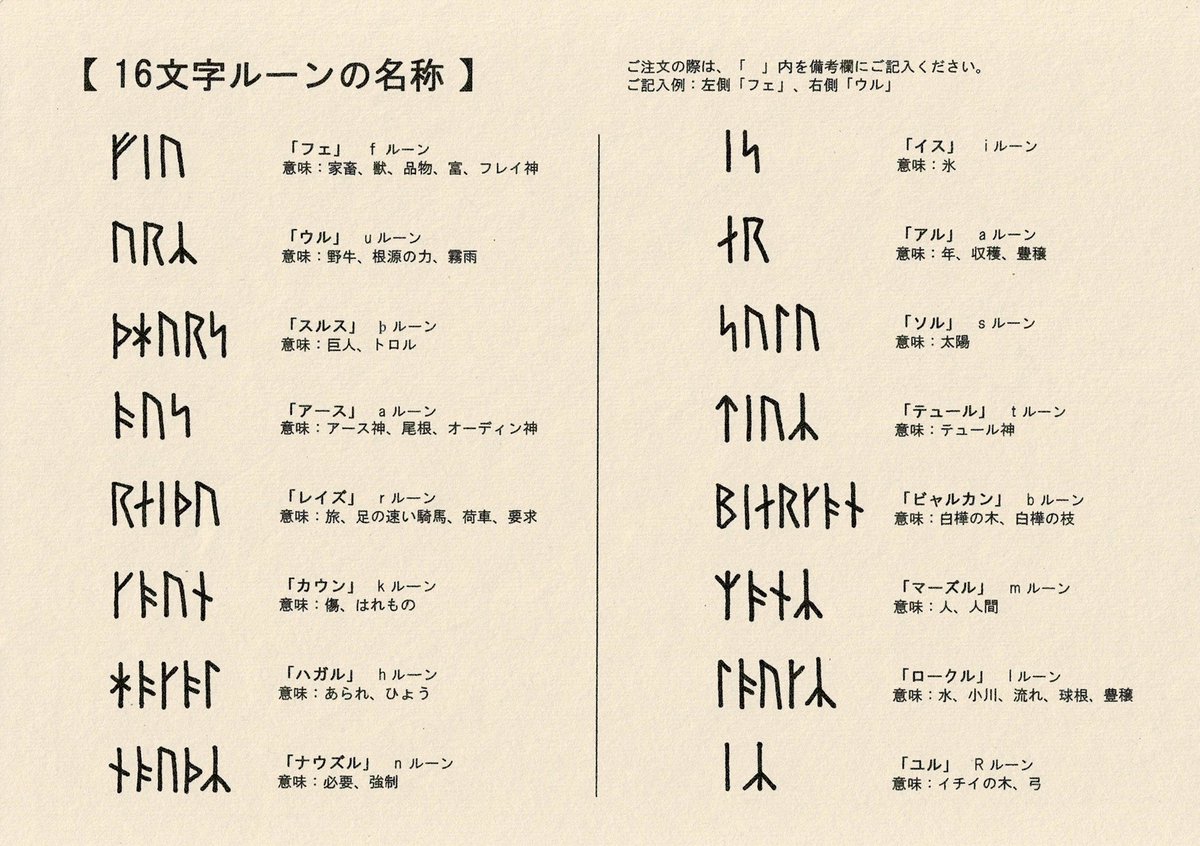 【 16文字ルーンの名称 】
ご注文の際は、「　」内を備考欄にご記入ください。
ご記入例：左側「フェ」、右側「ウル」
ᚠᛁᚢ 「フェ」 f ルーン
意味：家畜、獣、品物、富、フレイ神
ᚢᚱᛦ 「ウル」 u ルーン
意味：野牛、根源の力、霧雨
ᚦᚼᚢᚱᛋ 「スルス」 þ ルーン
意味：巨人、トロル
ᚬᚢᛋ 「アース」 a ルーン
意味：アース神、尾根、オーディン神
ᚱᛅᛁᚦᚢ 「レイズ」 r ルーン
意味：旅、足の速い騎馬、荷車、要求
ᚴᚬᚢᚾ 「カウン」 k ルーン
意味：傷、はれもの
ᚼᚬᚴᚬᛚ 「ハガル」 h ルーン
意味：あられ、ひょう
ᚾᚬᚢᚦᛦ 「ナウズル」 n ルーン
意味：必要、強制
ᛁᛋ 「イス」 i ルーン
意味：氷
ᛅᚱ 「アル」 a ルーン
意味：年、収穫、豊穣
ᛋᚢᛚᚢ 「ソル」 s ルーン
意味：太陽
ᛏᛁᚢᛦ 「テュール」 t ルーン
意味：テュール神
ᛒᛁᛅᚱᚴᚬᚾ 「ビャルカン」 b ルーン
意味：白樺の木、白樺の枝
ᛘᚬᚾᛦ 「マーズル」 m ルーン
意味：人、人間
ᛚᚬᚢᚴᛦ 「ロークル」 l ルーン
意味：水、小川、流れ、球根、豊穣
ᛁᛦ 「ユル」 R ルーン
意味：イチイの木、弓